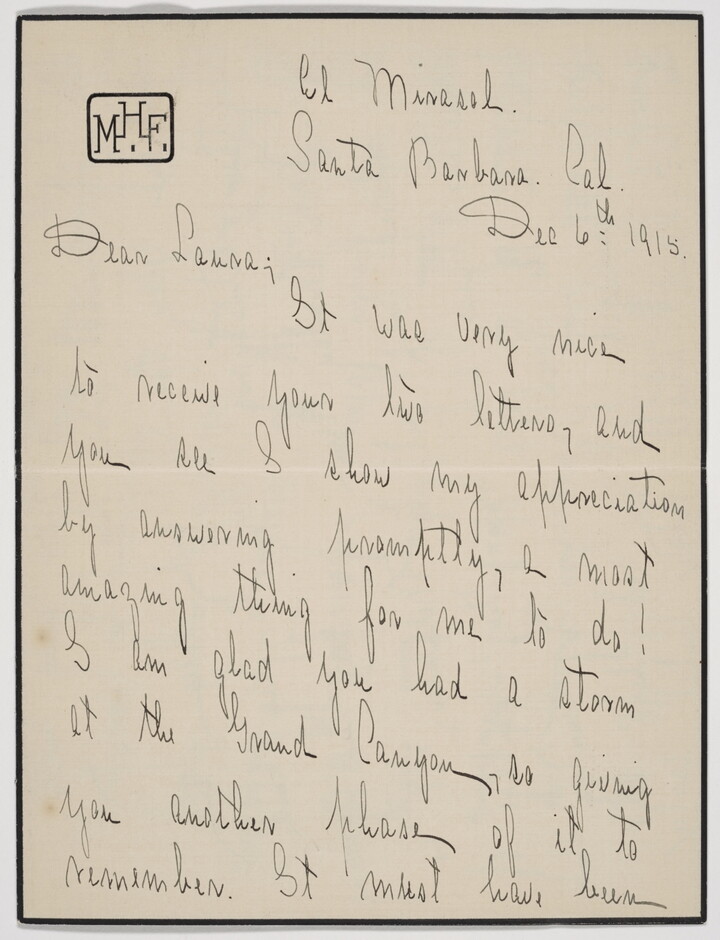 M.H.F.
El Mirasol.
Santa Barbara. Cal.
Dec 6:th 1915.
Dear Laura;
It was very nice
to receive your two letters, and
you see I show my appreciation
by answering promptly, a most
amazing thing for me to do!
I am glad you had a storm
at the Grand Canyon, so giving
you another phase of it to
remember. It must have been